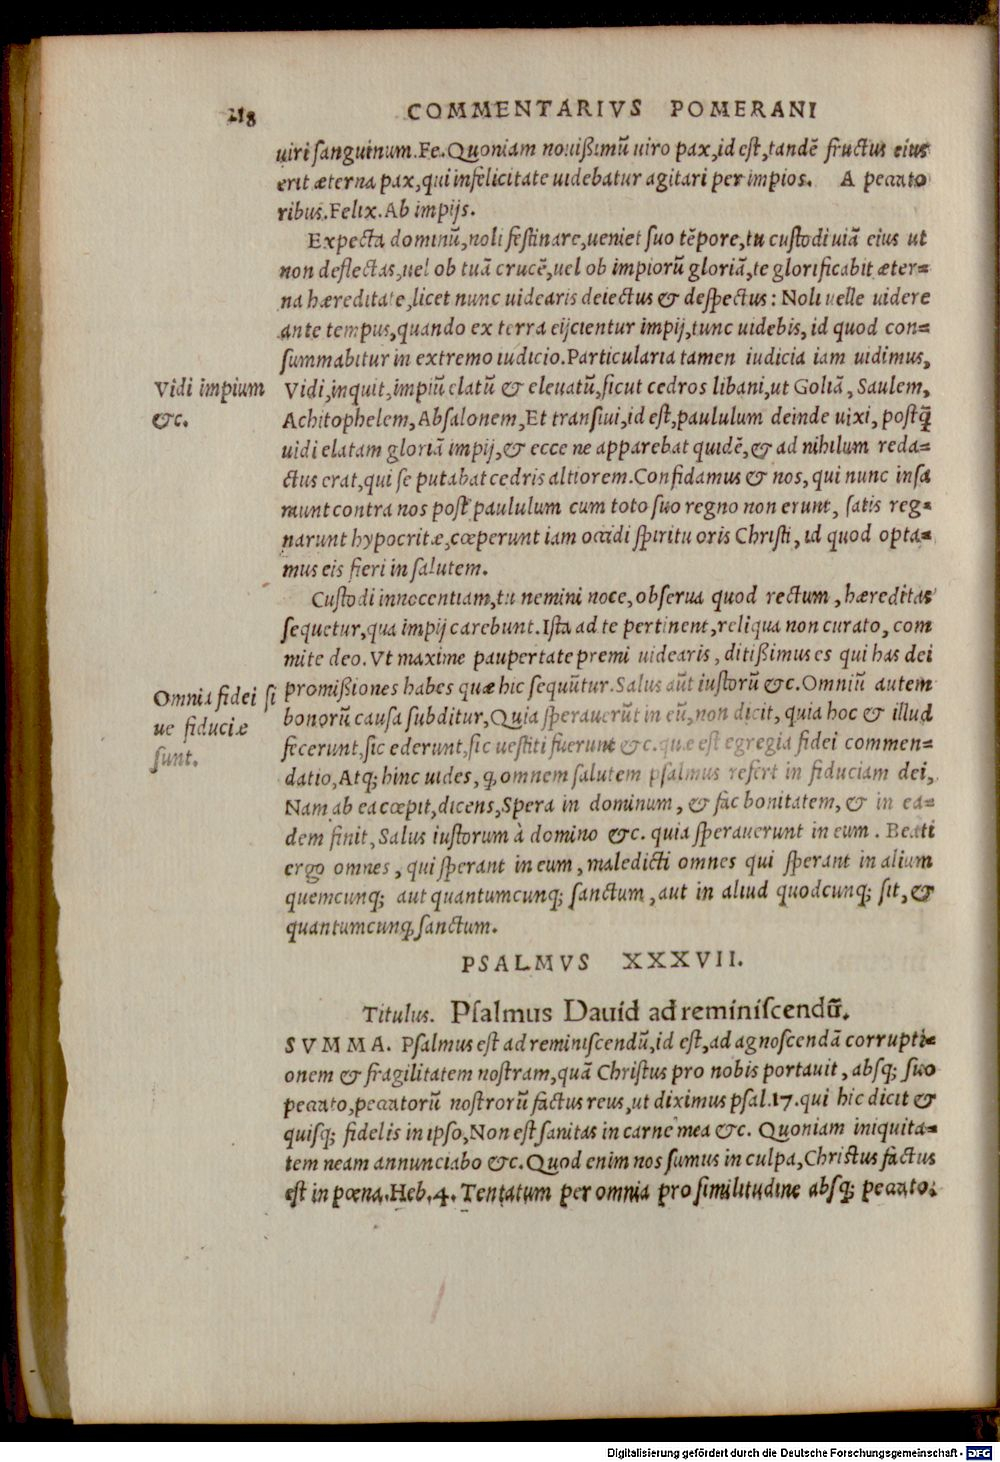 218 COMMENTARIVS POMERANI
uiri sanguinum. Fe. Quoniam nouißimū uiro pax, id est, tandē fructus eius
erit æterna pax, qui infelicitate uidebatur agitari per impios. A peccato
ribus. Felix. Ab impijs.
Expecta dominū, noli festinare, ueniet suo tēpore, tu custodi uiā eius ut
non deflectas, uel ob tuā crucē, uel ob impiorū gloriā, te glorificabit æter=
na hæreditate, licet nunc uidearis deiectus & despectus: Noli uelle uidere
ante tempus, quando ex terra eijcientur impij, tunc uidebis, id quod con=
summabitur in extremo iudicio. Particularia tamen iudicia iam uidimus,
Vidi impium
&c.
Vidi, inquit, impiū elatū & eleuatū, sicut cedros libani, ut Goliā, Saulem,
Achitophelem, Absalonem, Et transiui, id est, paululum deinde uixi, postq̄
uidi elatam gloriā impij, & ecce ne apparebat quidē, & ad nihilum reda=
ctus erat, qui se putabat cedris altiorem. Confidamus & nos, qui nunc insa
niunt contra nos post paululum cum toto suo regno non erunt, satis reg=
narunt hypocritæ, cœperunt iam occidi spiritu oris Christi, id quod opta=
mus eis fieri in salutem.
Custodi innocentiam, tu nemini noce, obserua quod rectum, hæreditas
sequetur, qua impij carebunt. Ista ad te pertinent, reliqua non curato, com
mite deo. Vt maxime paupertate premi uidearis, ditißimus es qui has dei
Omnia fidei si
ue fiduciæ
sunt.
promißiones habes quæ hic sequūtur. Salus aūt iustorū &c. Omniū autem
bonorū causa subditur, Quia sperauerūt in eū, non dicit, quia hoc & illud
fecerunt, sic ederunt, sic uestiti fuerunt &c. quæ est egregia fidei commen=
datio, Atq; hinc uides, q, omnem salutem psalmus refert in fiduciam dei,
Nam ab ea cœpit, dicens, Spera in dominum, & fac bonitatem, & in ea=
dem finit, Salus iustorum à domino &c. quia sperauerunt in eum. Beati
ergo omnes, qui sperant in eum, maledicti omnes qui sperant in alium
quemcunq; aut quantumcunq; sanctum, aut in aliud quodcunq; sit, &
quantumcunq, sanctum.
PSALMVS XXXVII.
Titulus. Psalmus Dauid ad reminiscendū.
SVMMA. Psalmus est ad reminiscendū, id est, ad agnoscendā corrupti=
onem & fragilitatem nostram, quā Christus pro nobis portauit, absq; suo
peccato, peccatorū nostrorū factus reus, ut diximus psal. 17. qui hic dicit &
quisq; fidelis in ipso, Non est sanitas in carne mea &c. Quoniam iniquita=
tem neam annunciabo &c. Quod enim nos sumus in culpa, Christus factus
est in pœna. Heb. 4. Tentatum per omnia pro similitudine absq; peccato.
Digitalisierung gefördert durch die Deutsche Forschungsgemeinschaft - DFG